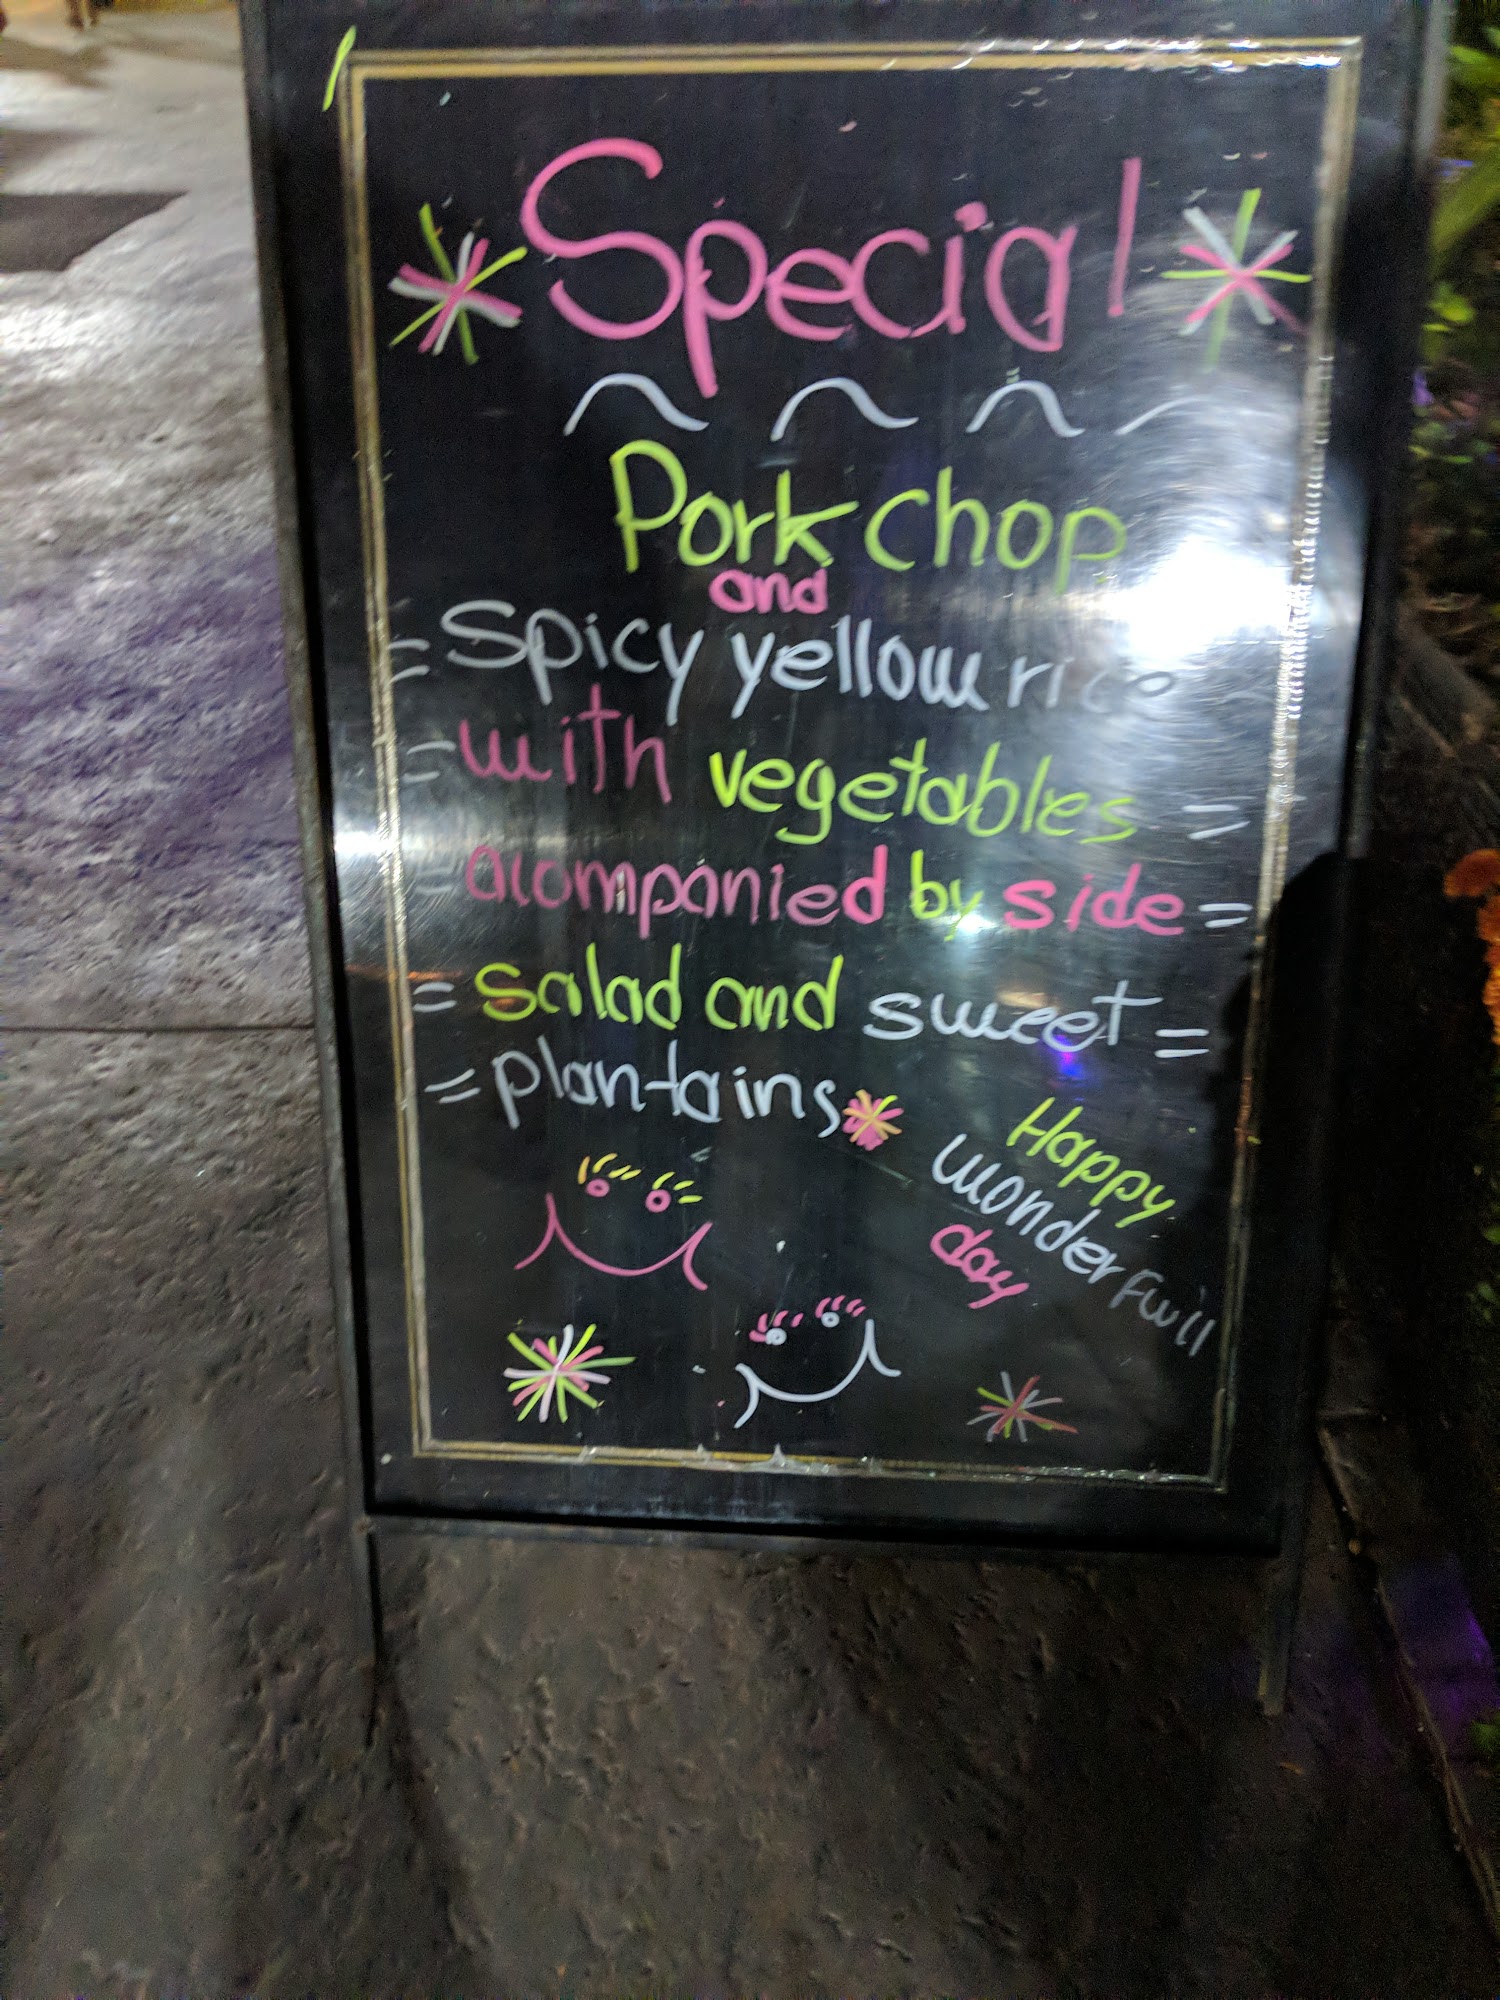 Special
Pork chop
and
Spicy yellow rice
with vegetables
acompanied by side
salad and sweet
plantains
Happy
wonderfull
day